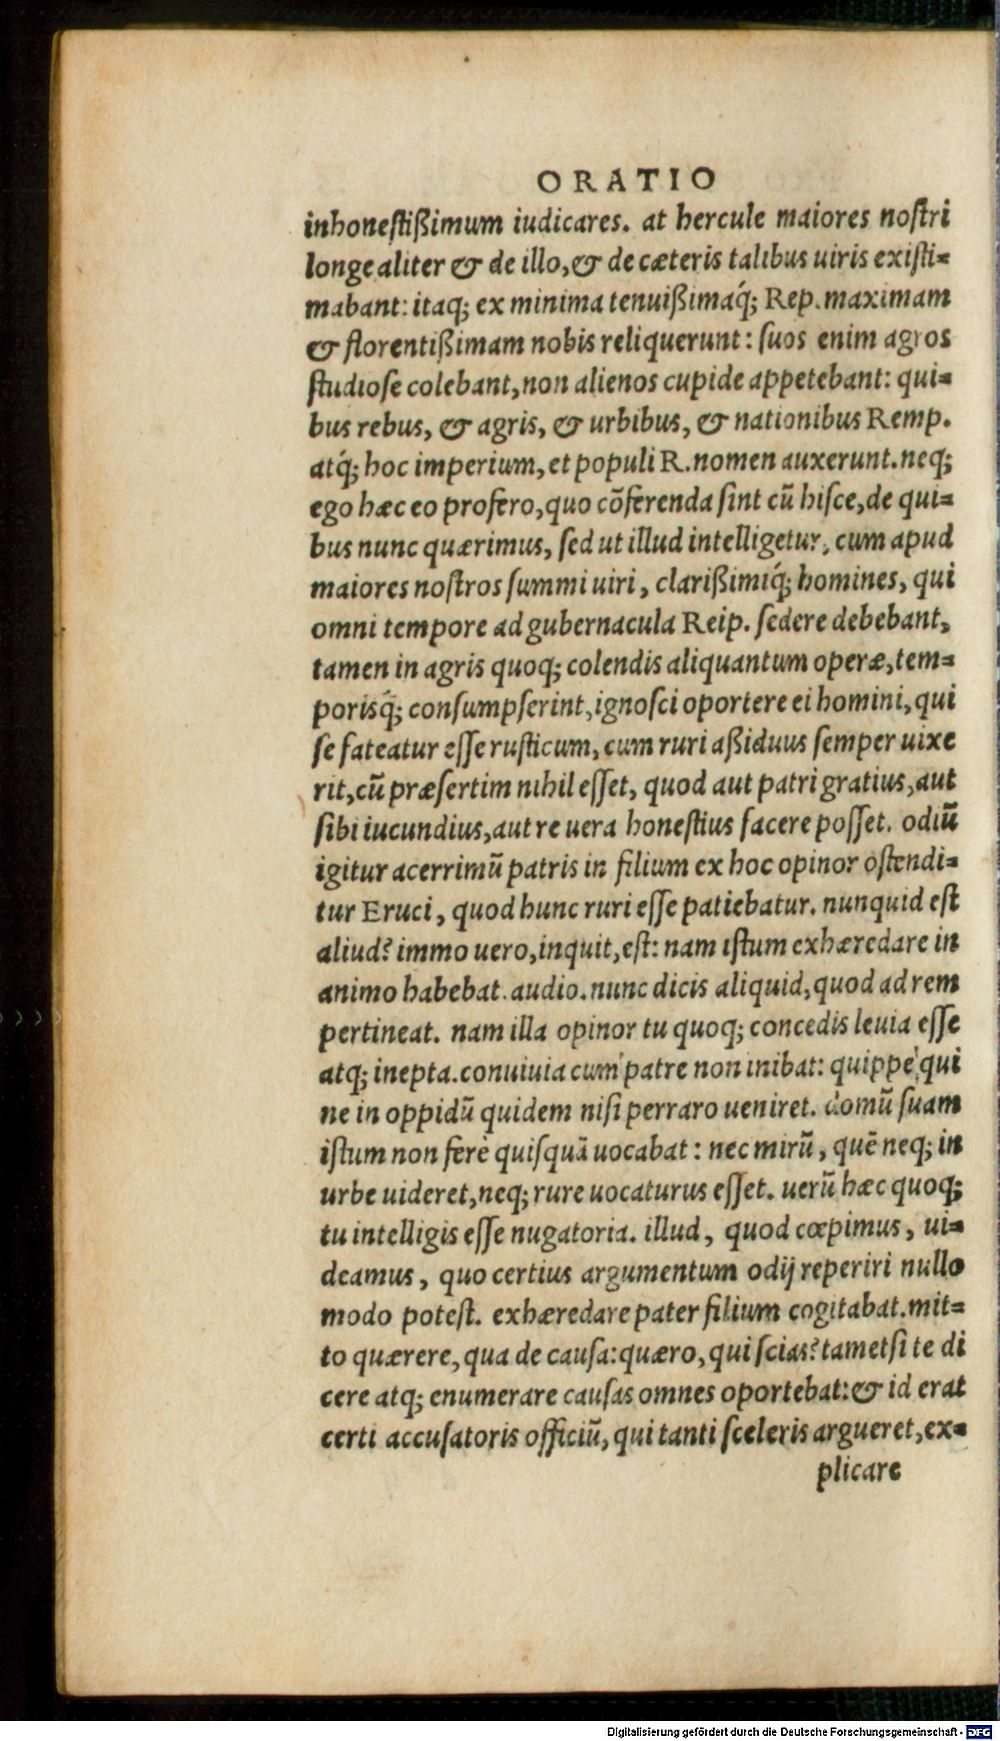 ORATIO
inhonestißimum iudicares. at hercule maiores nostri
longe aliter & de illo, & de cæteris talibus uiris existi=
mabant: itaq; ex minima tenuißimaq́; Rep. maximam
& florentißimam nobis reliquerunt: suos enim agros
studiose colebant, non alienos cupide appetebant: qui=
bus rebus, & agris, & urbibus, & nationibus Remp.
atq́; hoc imperium, et populi R. nomen auxerunt. neq;
ego hæc eo profero, quo cõferenda sint cũ hisce, de qui=
bus nunc quærimus, sed ut illud intelligetur, cum apud
maiores nostros summi uiri, clarißimiq́; homines, qui
omni tempore ad gubernacula Reip. sedere debebant,
tamen in agris quoq; colendis aliquantum operæ, tem=
porisq́; consumpserint, ignosci oportere ei homini, qui
se fateatur esse rusticum, cum ruri aßiduus semper uixe
rit, cũ præsertim nihil esset, quod aut patri gratius, aut
sibi iucundius, aut re uera honestius facere posset. odiũ
igitur acerrimũ patris in filium ex hoc opinor ostendi=
tur Eruci, quod hunc ruri esse patiebatur. nunquid est
aliud? immo uero, inquit, est: nam istum exhæredare in
animo habebat. audio. nunc dicis aliquid, quod ad rem
pertineat. nam illa opinor tu quoq; concedis leuia esse
atq; inepta. conuiuia cum patre non inibat: quippè qui
ne in oppidũ quidem nisi perraro ueniret. domũ suam
istum non ferè quisquã uocabat: nec mirũ, quẽ neq; in
urbe uideret, neq; rure uocaturus esset. uerũ hæc quoq;
tu intelligis esse nugatoria. illud, quod cœpimus, ui=
deamus, quo certius argumentum odij reperiri nullo
modo potest. exhæredare pater filium cogitabat. mit=
to quærere, qua de causa: quæro, qui scias? tametsi te di
cere atq; enumerare causas omnes oportebat: & id erat
certi accusatoris officiũ, qui tanti sceleris argueret, ex=
plicare
Digitalisierung gefördert durch die Deutsche Forschungsgemeinschaft - DFG